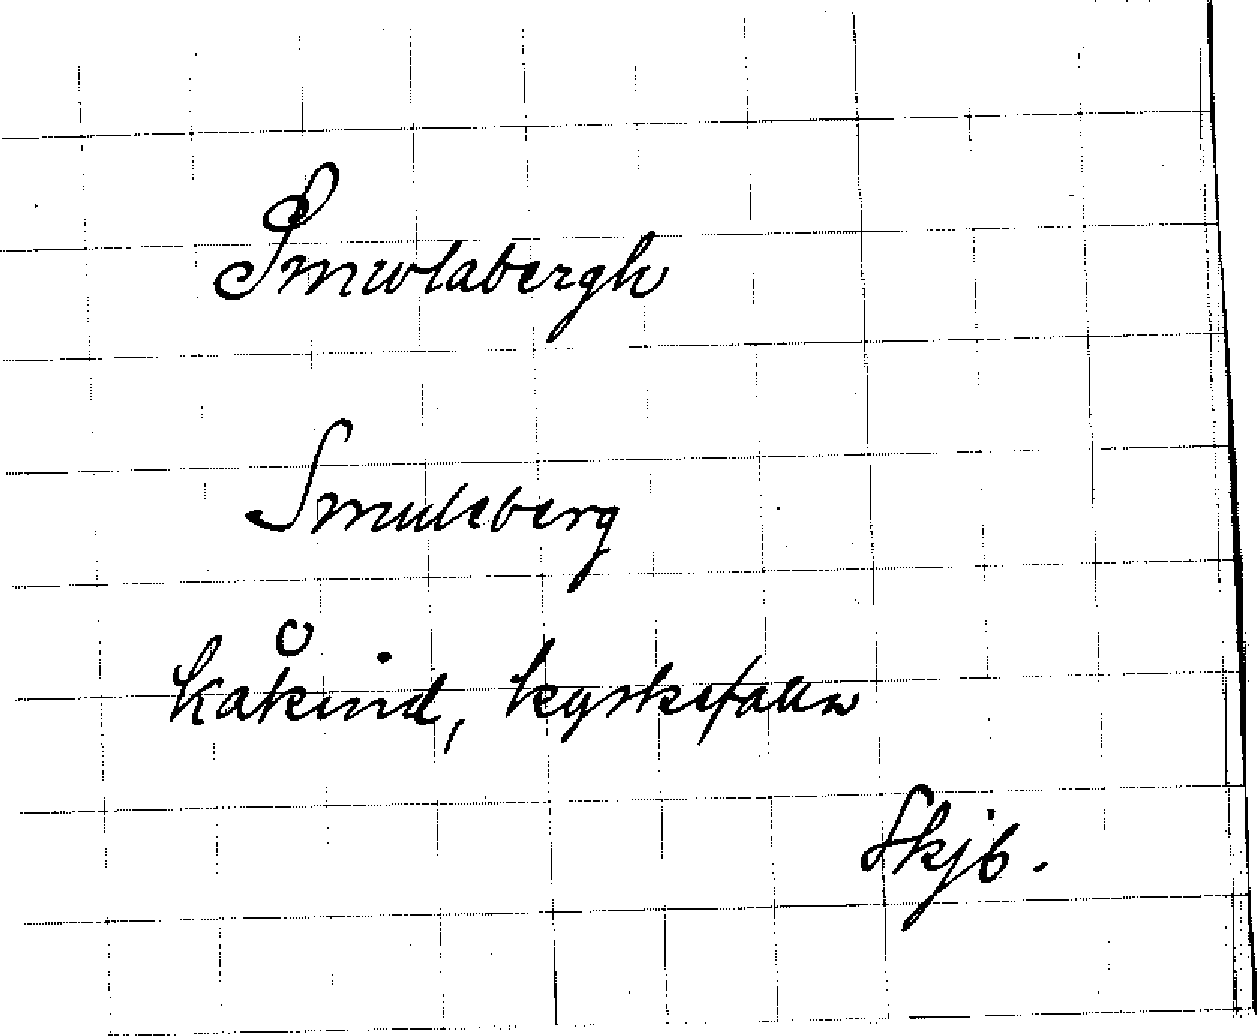 Smwlabergh
Smuleberg
Kåkind, Kyrkefalla
Skjb.